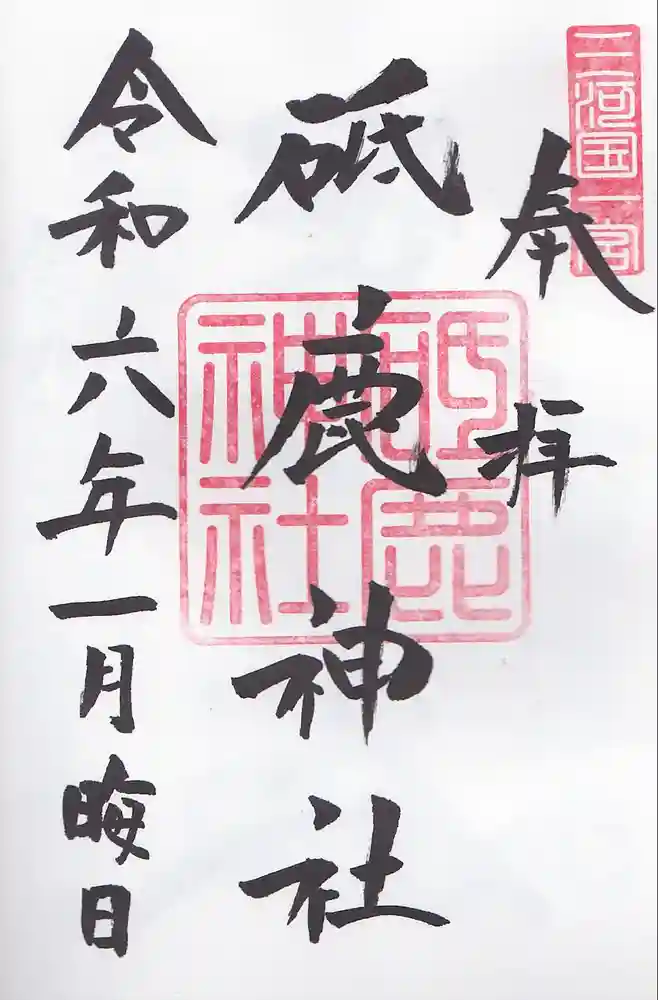 三河国一宮
奉拝
砥鹿神社
砥鹿神社
令和六年一月晦日